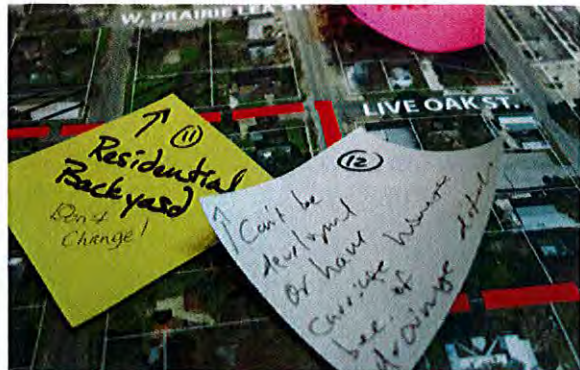 W. PRAIRIE LEA ST.
LIVE OAK ST.
11
Residential
Backyard
Don't
Change!
12
Can't be
developed
or have
carriage
bec. of
drainage